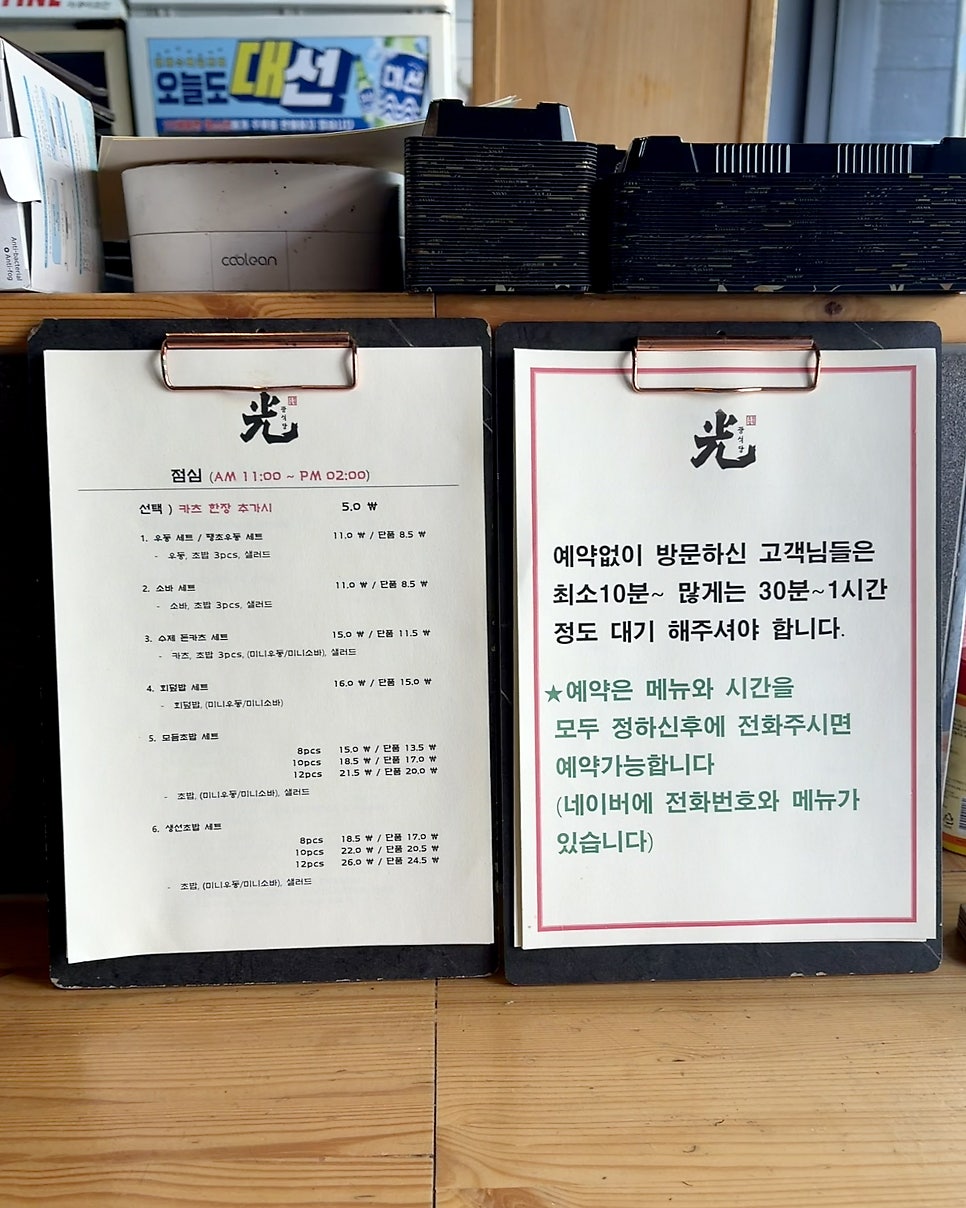 오늘도 대선
대선
coolean
Anti-bacterial
Anti-fog
光
광식당
점심 (AM 11:00 ~ PM 02:00)
선택 ) 카츠 한장 추가시 5.0 ₩
1. 우동 세트 / 땡초우동 세트 11.0 ₩ / 단품 8.5 ₩
- 우동, 초밥 3pcs, 샐러드
2. 소바 세트 11.0 ₩ / 단품 8.5 ₩
- 소바, 초밥 3pcs, 샐러드
3. 수제 돈카츠 세트 15.0 ₩ / 단품 11.5 ₩
- 카츠, 초밥 3pcs, (미니우동/미니소바), 샐러드
4. 회덮밥 세트 16.0 ₩ / 단품 15.0 ₩
- 회덮밥, (미니우동/미니소바)
5. 모듬초밥 세트
8pcs 15.0 ₩ / 단품 13.5 ₩
10pcs 18.5 ₩ / 단품 17.0 ₩
12pcs 21.5 ₩ / 단품 20.0 ₩
- 초밥, (미니우동/미니소바), 샐러드
6. 생선초밥 세트
8pcs 18.5 ₩ / 단품 17.0 ₩
10pcs 22.0 ₩ / 단품 20.5 ₩
12pcs 26.0 ₩ / 단품 24.5 ₩
- 초밥, (미니우동/미니소바), 샐러드
光
광식당
예약없이 방문하신 고객님들은
최소10분~ 많게는 30분~1시간
정도 대기 해주셔야 합니다.
★예약은 메뉴와 시간을
모두 정하신후에 전화주시면
예약가능합니다
(네이버에 전화번호와 메뉴가
있습니다)